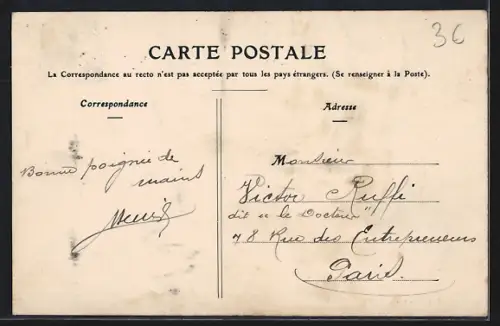 36
CARTE POSTALE
La Correspondance au recto n'est pas acceptée par tous les pays étrangers. (Se renseigner à la Poste).
Correspondance
Adresse
Bonne poignée de
mains
Monsieur
Victor Ruffi
dit "le Docteur"
78 Rue des Entrepreneurs
Paris.